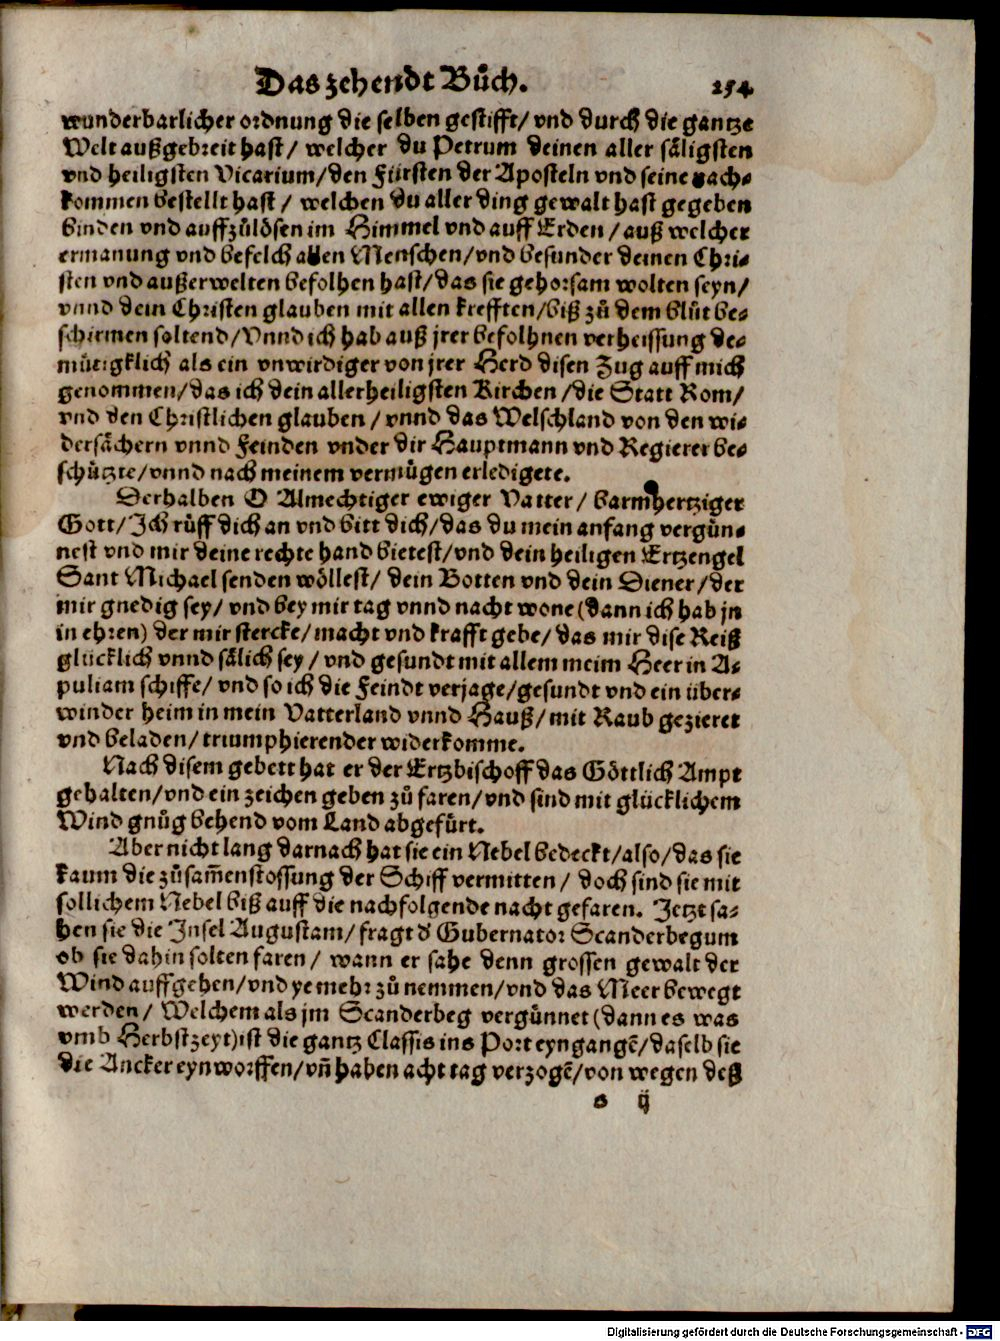 Das zehendt Bůch. 254.
wunderbarlicher ordnung die selben gestifft/ vnd durch die gantze
Welt außgebreit hast/ welcher du Petrum deinen aller säligsten
vnd heiligsten Vicarium/den Fürsten der Aposteln vnd seine nach-
kommen bestellt hast / welchen du aller ding gewalt hast gegeben
binden vnd auffzůlösen im Himmel vnd auff Erden / auß welcher
ermanung vnd befelch allen Menschen/vnd besunder deinen Chri-
sten vnd außerwelten befolhen hast/das sie gehorsam wolten seyn/
vnnd dein Christen glauben mit allen krefften/biß zů dem blůt be-
schirmen soltend/Vnnd ich hab auß jrer befolhnen verheissung de-
müetigklich als ein vnwirdiger von jrer Herd disen Zug auff mich
genommen/das ich dein allerheiligsten Kirchen /die Statt Rom/
vnd den Christlichen glauben / vnnd das Welschland von den wi-
dersächern vnnd Feinden vnder dir Hauptmann vnd Regierer be-
schützte/vnnd nach meinem vermügen erledigete.
Derhalben O Almechtiger ewiger Vatter / barmhertziger
Gott/Ich rüff dich an vnd bitt dich/das du mein anfang vergün-
nest vnd mir deine rechte hand bietest/vnd dein heiligen Ertzengel
Sant Michael senden wöllest/ dein Botten vnd dein Diener/der
mir gnedig sey/ vnd bey mir tag vnnd nacht wone (dann ich hab jn
in ehren) der mir stercke/macht vnd krafft gebe/das mir dise Reiß
glücklich vnnd sälich sey / vnd gesundt mit allem meim Heer in A-
puliam schiffe/ vnd so ich die Feindt verjage/gesundt vnd ein über-
winder heim in mein Vatterland vnnd Hauß/mit Raub gezieret
vnd beladen/triumphierender widerkomme.
Nach disem gebett hat er der Ertzbischoff das Göttlich Ampt
gehalten/vnd ein zeichen geben zů faren/vnd sind mit glücklichem
Wind gnůg behend vom Land abgefürt.
Aber nicht lang darnach hat sie ein Nebel bedeckt/also/das sie
kaum die zůsam̃enstossung der Schiff vermitten / doch sind sie mit
sollichem Nebel biß auff die nachfolgende nacht gefaren. Jetzt sa-
hen sie die Insel Augustam/fragt d' Gubernator Scanderbegum
ob sie dahin solten faren / wann er sahe denn grossen gewalt der
Wind auffgehen/vnd ye mehr zů nemmen/vnd das Meer bewegt
werden/ Welchem als jm Scanderbeg vergünnet (dann es was
vmb Herbstzeyt)ist die gantz Classis ins Port eyngangẽ/daselb sie
die Ancker eynworffen/vñ haben acht tag verzogẽ/von wegen deß
s ij
Digitalisierung gefördert durch die Deutsche Forschungsgemeinschaft - DFG